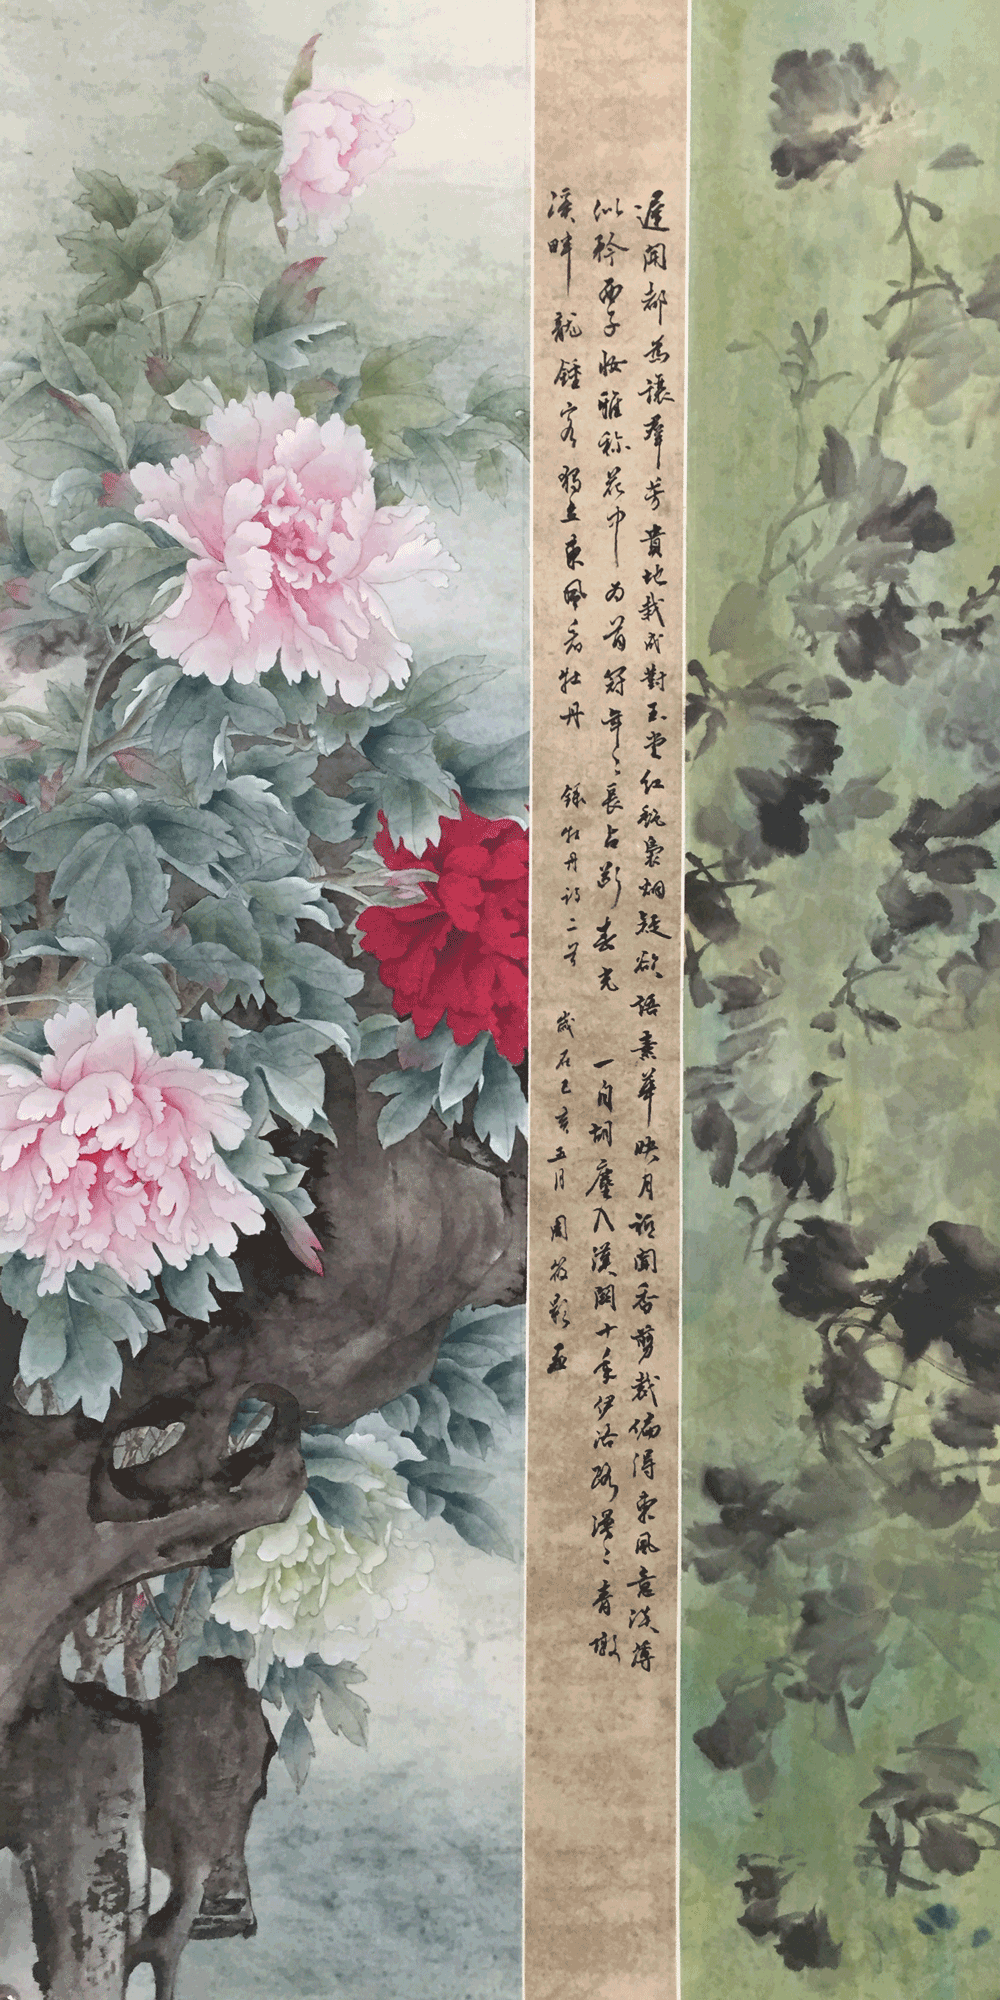 遲開都為讓羣芳貴地栽成對玉堂紅艷裊烟疑欲語素華映月祗聞香剪裁偏得東風意淡薄
似矜西子妝雅称花中为首冠年〻長占斷春光 一自胡塵入漢關十年伊洛路漫〻青墩
溪畔龍鍾客獨立東風看牡丹 錄牡丹詩二首 歲在己亥五月 周